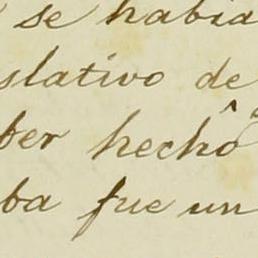 se habia
slativo de
ber hecho
ba fue un